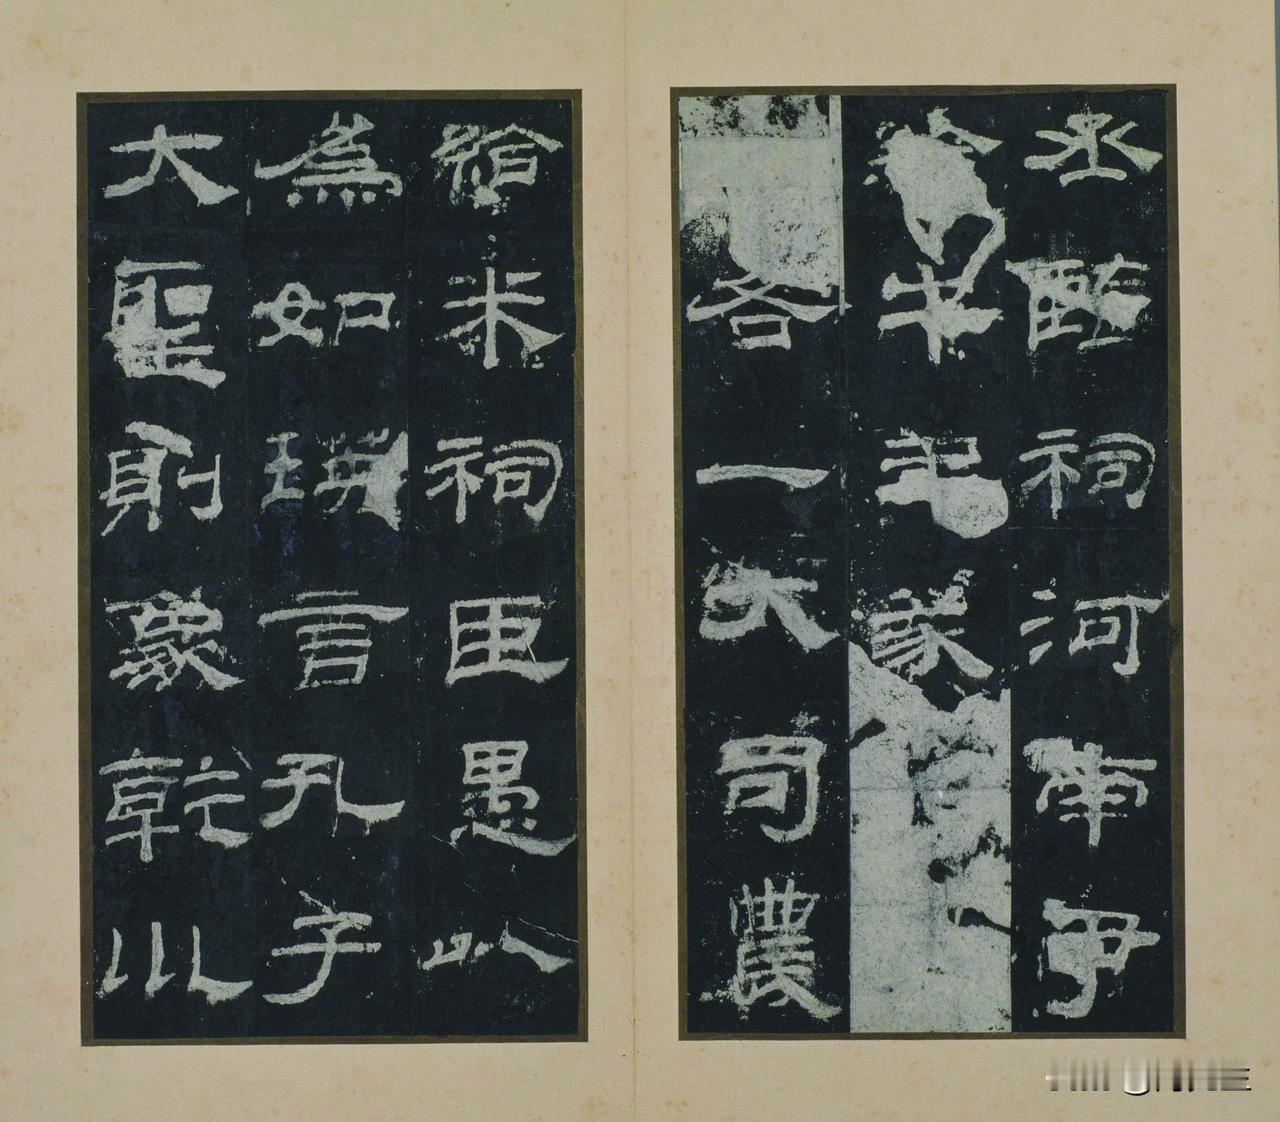 丞監祠河南尹
給牛羊豕
各一大司農
給米祠臣愚以
為如瑛言孔子
大聖則象乾川